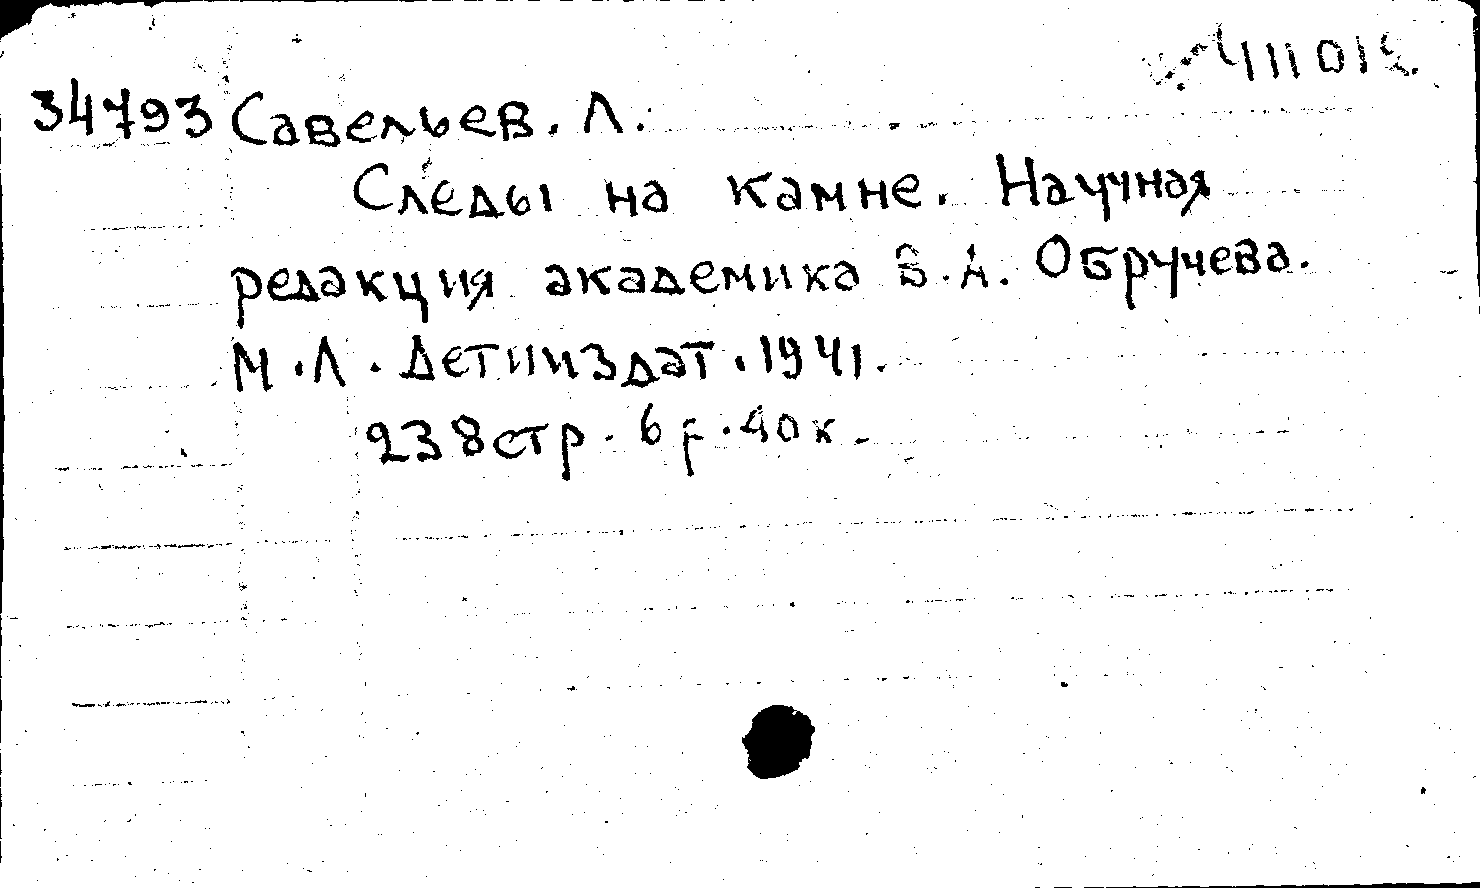 34793 Савельев. Л.
Следы на камне. Научная
редакция академика В.А. Обручева.
М.Л. Детииздат. 1941.
238стр. 6р.40к.